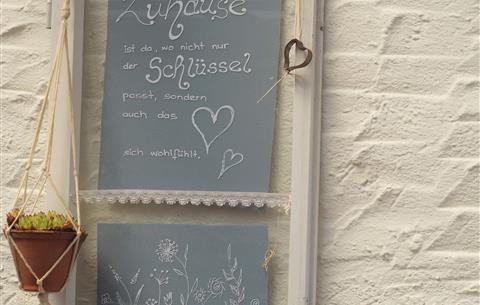 Zuhause
ist da, wo nicht nur
der Schlüssel
passt, sondern
auch das
sich wohlfühlt.